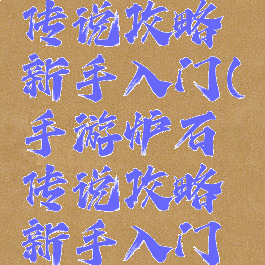 传说攻略
新手入门(
手游炉石
传说攻略
新手入门